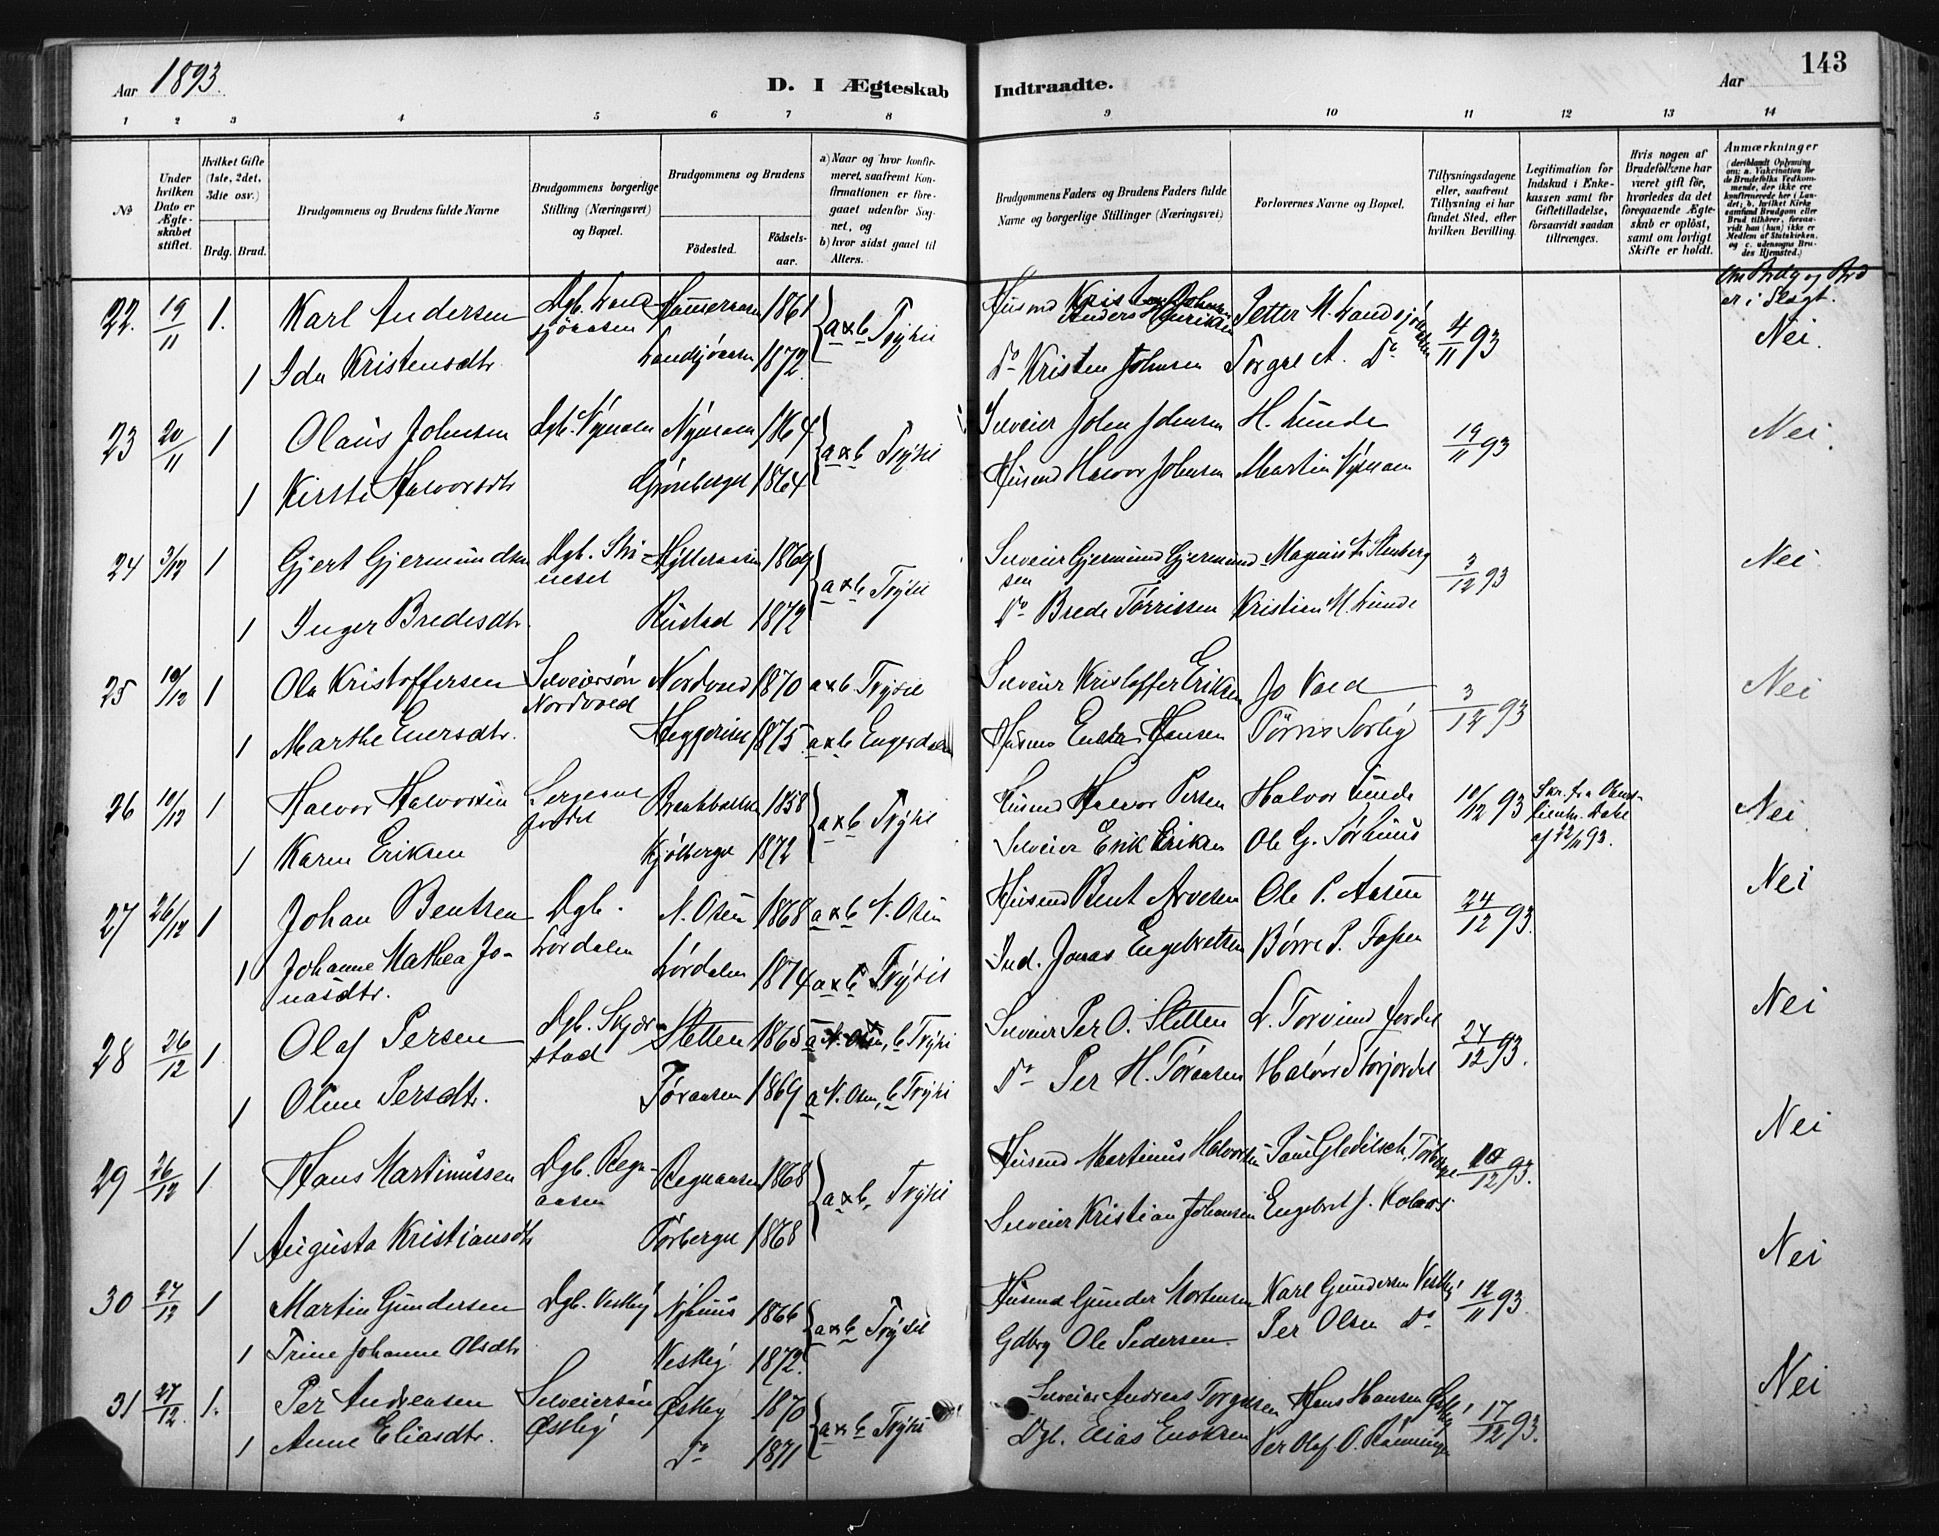 143
Aar 1893.
D. I Ægteskab Indtraadte.
Aar
1 2 3 4 5 6 7 8 9 10 11 12 13 14
№
Under hvilken Dato er Ægteskabet stiftet.
Hvilket Gifte (1ste, 2det, 3die osv.)
Brdg. Brud.
Brudgommens og Brudens fulde Navne
Brudgommens borgerlige Stilling (Næringsvei) og Bopæl.
Brudgommens og Brudens
Fødested. Fødselsaar.
a) Naar og hvor konfirmeret, saafremt Konfirmationen er foregaaet udenfor Sognet, og
b) hvor sidst gaaet til Alters.
Brudgommens Faders og Brudens Faders fulde Navne og borgerlige Stillinger (Næringsvei)
Forlovernes Navne og Bopæl.
Tillysningsdagene eller, saafremt Tillysning ei har fundet Sted, efter hvilken Bevilling.
Legitimation for Indskud i Enkekassen samt for Giftetilladelse, forsaavidt saadan tiltrænges.
Hvis nogen af Brudefolkene har været gift før, hvorledes da det foregaaende Ægteskab er opløst, samt om lovligt Skifte er holdt.
Anmærkninger
(deriblandt Oplysning om: a. Vaccination for de Brudefolks Vedkommende, der ikke ere konfirmerede her i Landet; b. hvilket Kirkesamfund Brudgom eller Brud tilhører, forsaavidt han (hun) ikke er Medlem af Statskirken, og c. udensogns Brudes Hjemsted.)
Om Brdg og Brd er i Slægt.
22. 19/11 1. Karl Andersen 1861 a & b Trysil Husmd Anders Henriksen Petter M. Landsjøaasen 4/11 93 Nei.
1 Ida Kristensdtr. Landsjøaasen 1872. Do Kristen Johnsen Torger A. Do
23 20/11 1 Olaus Johnsen Dgb. Nymoen Nymoen 1864 a & b Trysil Selveier John Johnsen H. Lunde 19/11 93 Nei.
1 Kirsti Halvorsdtr Grønberget 1864 Husmd Halvor Johnsen Martin Nymoen
24 3/12 1 Gjert Gjermundsen 1869 a & b Trysil Selveier Gjermund Gjermundsen Magnus A. Stenberg 3/12 93 Nei.
1 Inger Bredesdtr. Rustad 1872 Do Brede Tørrissen Kristian M. Lunde
25 10/12 1 Ola Kristoffersen Selveiersøn Nordvold Nordvold 1870 a & b Trysil Selveier Kristoffer Eriksen Jo Vold 3/12 93 Nei
1 Marthe Enersdtr. Heggeriset 1875. a & b Engerdalen Husmd Ener Hansen Tørris Sorlig
26 10/12 1 Halvor Halvorsen Sergeant Jordet 1858 a & b Trysil Husmd Halvor Persen Halvor Lunde 10/12 93 Nei
1 Karen Eriksen Kjølberget 1872 Selveier Erik Eriksen Ole G. Sørhuus
27 26/12 1 Johan Bentsen Dgb. Lørdalen N. Osen 1868 a & b N. Osen Husmd Bent Arvesen Ole P. Aasen 24/12 93. Nei
1 Johanne Mathea Jonasdtr. Lørdalen 1874 a & b Trysil Ind. Jonas Engebretsen Børre P. Fossen
28 26/12 1. Olaf Persen Dgb. Skjærstad Sletten 1865 a N. Osen, b Trysil Selveier Per O. Sletten 24/12 93. Nei
1 Oline Persdtr. Tøraasen 1869 a N. Osen, b Trysil Do Per H. Tøraasen Halvor Storjordet
29 26/12 1. Hans Martinussen Dgb. Regnaasen Regnaasen 1868 a & b, Trysil Husmd Martinus Halvorsen 10/12 93. Nei
1 Augusta Kristiansdtr Tørberget 1868 Selveier Kristian Johansen
30 27/12 1 Martin Gundersen Dgb. Vestby Nyhuus 1866 a & b Trysil Husmd Gunder Mortensen Karl Gundersen Vestby 12/11 93. Nei
1 Trine Johanne Olsdtr Vestby 1872. Gdbrg Ole Pedersen Per Olsen Do
31 27/12. 1. Per Andreasen Selveiersøn Østby Østby 1870 a & b Trysil Selveier Andreas Torgersen Hans Hansen Østby 17/12 93. Nei
1 Anne Eliasdtr. Do 1871 Dgb. Elias Enoksen Per Olaf O. Rønningen